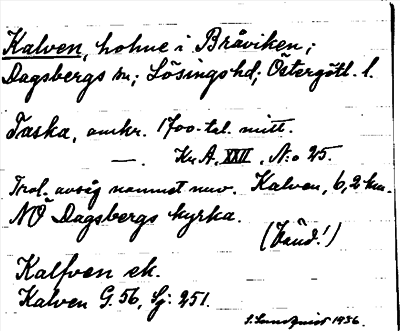 Kalven, holme i Bråviken;
Dagsbergs sn; Lösings hd; Östergötl. l.
Taska, omkr. 1700-tal. mitt.
—. Kr.A. XXII, N:o 25.
Trol. avsåg namnet nuv. Kalven, 6,2 km.
NÖ Dagsbergs kyrka.
(Vänd!)
Kalfven ek.
Kalven G. 56, Sj: 251.
S. Lundqvist 1936.